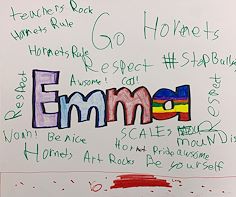 teachers Rock
Hornets Rule
Go Hornets
Hornets Rule
Respect
#StopBully
Awesome! Cool!
Respect
Emma
Respect
Noah!
Be nice
SCALES
Mound
is
Hornet Pride
awesome
Hornets
Art Rocks
Be yourself